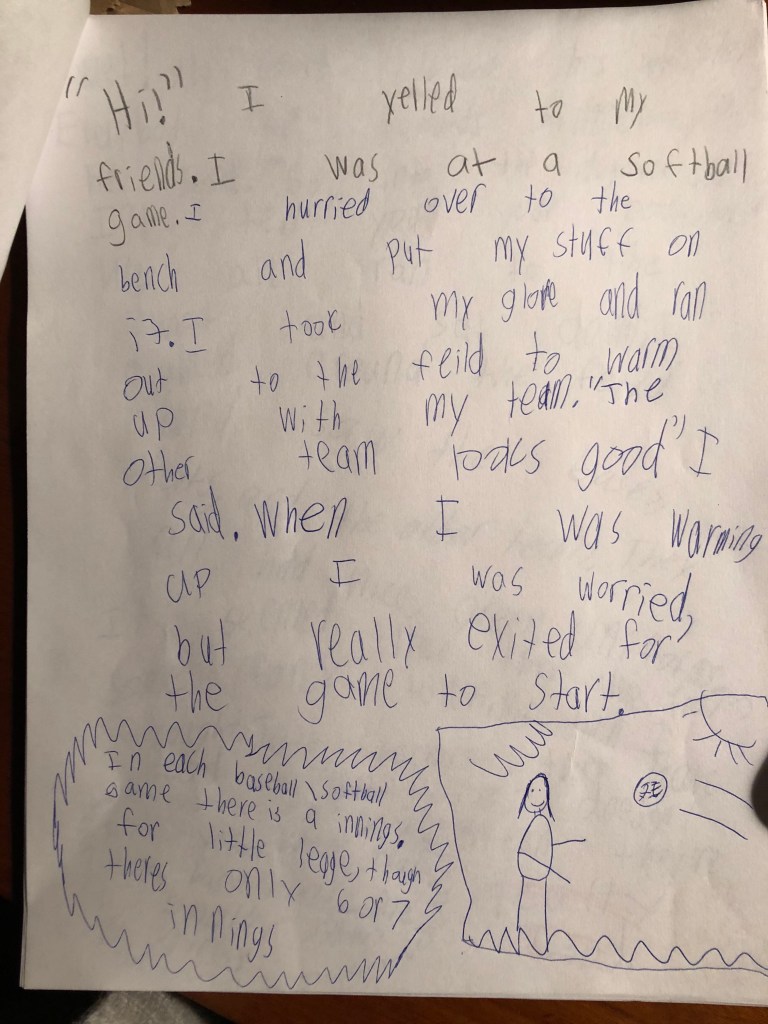 "Hi!" I yelled to my
friends. I was at a softball
game. I hurried over to the
bench and put my stuff on
it. I took my glove and ran
out to the feild to warm
up with my team. "The
other team looks good" I
said. when I was warming
up I was worried,
but really exited for
the game to start.
In each baseball\softball
game there is a innings.
for little legge, though
theres only 6 or 7
innings